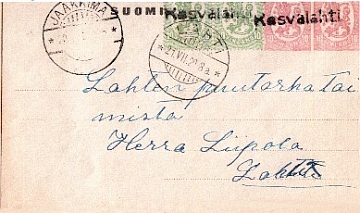 JAAKKIMA
SUOMI
Kasvalahti Kasvalahti
21.VII.20.8a.
Lahten puutarhatoi
mista
Herra Liipola
Lahti